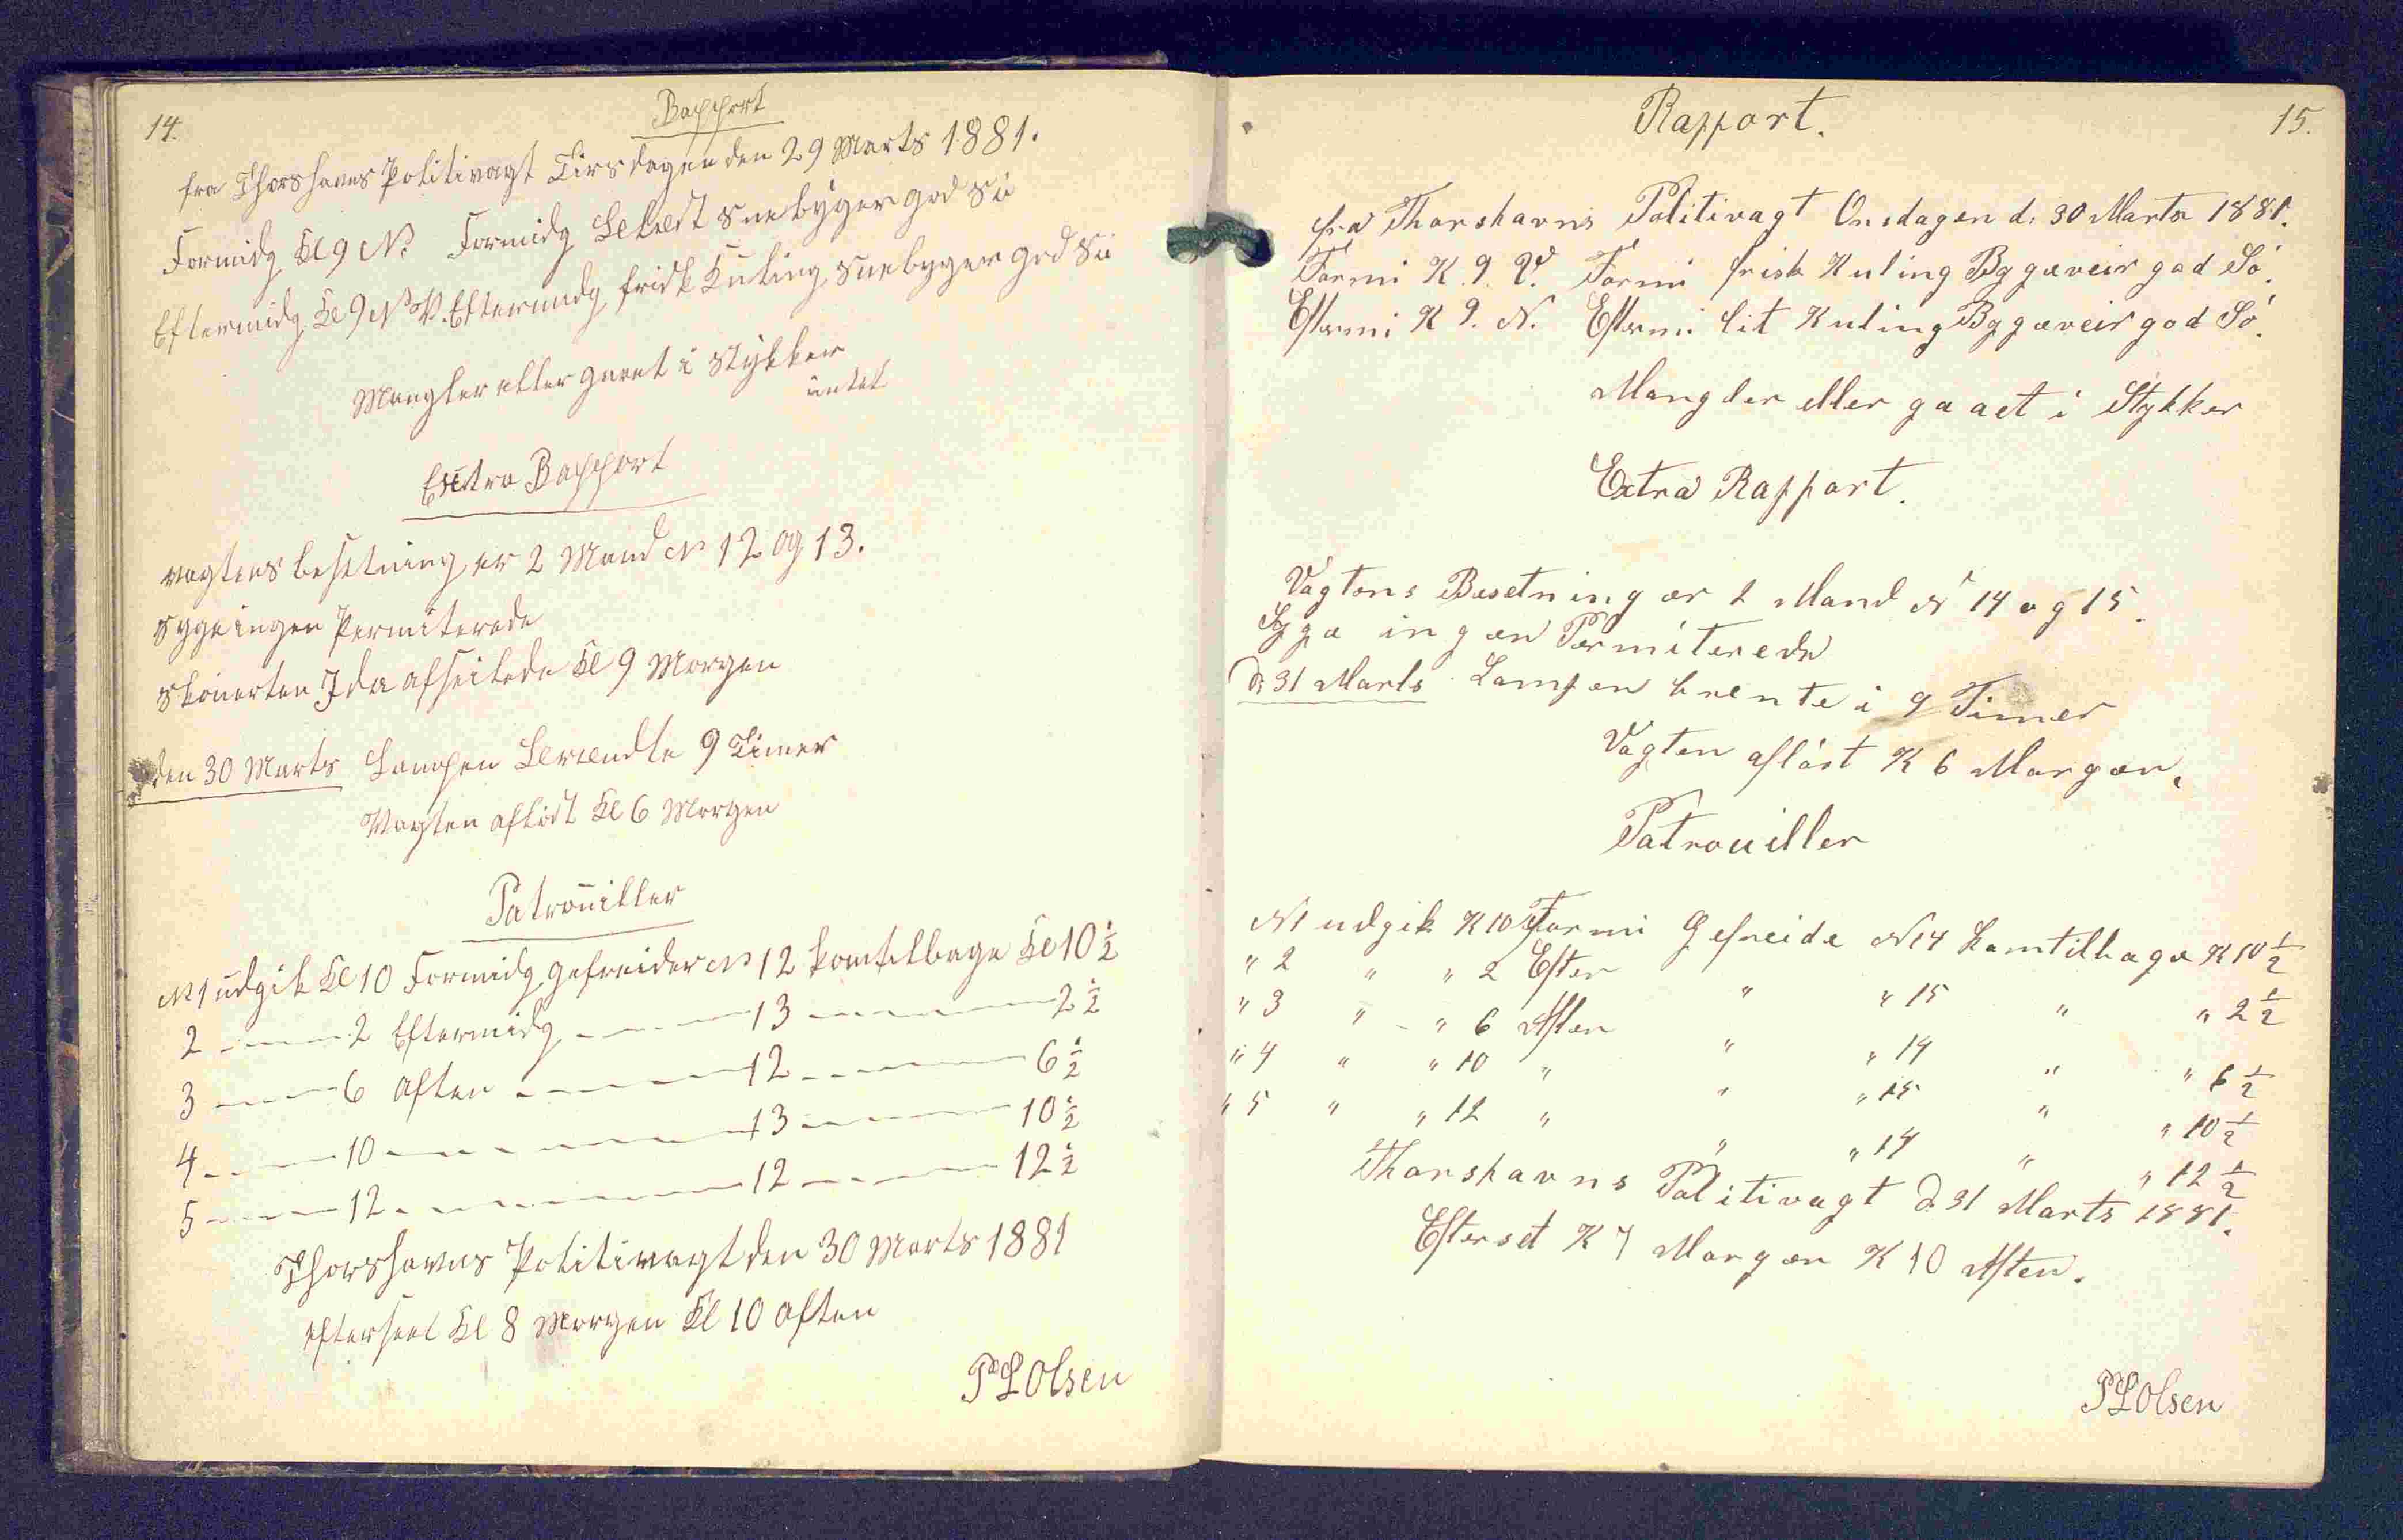 14.
Rapport
fra Thorshavns Politivagt Tirsdagen den 29 Marts 1881.
Formidg Kl 9 N. Formidg Lekædt Snebyger god Sö
Eftermidg Kl 9 N V. Eftermidg frisk Kuling Snebyger god Sö
Mangler eller gaaet i Stykker
intet
Extra Rapport
vagtens besetning er 2 Mand N 12 og 13.
Syge ingen Permiterede
Skonerten Ida afseilede Kl 9 Morgen
den 30 Marts Lampen brændte 9 Timer
Vagten aflöst Kl 6 Morgen
Patrouiller
N 1 udgik Kl 10 Formidg gefreider N 12 kom tilbage Kl 10 1/2
2 — 2 Eftermidg — 13 — 2 1/2
3 — 6 Aften — 12 — 6 1/2
4 — 10 — 13 — 10 1/2
5 — 12 — 12 — 12 1/2
Thorshavns Politivagt den 30 Marts 1881
efterseet Kl 8 Morgen Kl 10 Aften
P L Olsen
15.
Rapport.
fra Thorshavns Politivagt Onsdagen d. 30 Marts 1881.
Formi K. 9. V. Formi frisk Kuling Bygæveir god Sö.
Eftermi K 9. N. Eftermi lit Kuling Bygæveir god Sö.
Mangler eller gaaet i Stykker
Extra Rapport.
Vagtens Besetning er 2 Mand N 14 og 15.
Syge ingen Permiterede
D. 31 Marts Lampen brente i 9 Timer
Vagten aflöst K 6 Morgen.
Patrouiller
N1 udgik K 10 Formi Gefreide N 14 komtilbage K 10 1/2
" 2 " " 2 Efter " " 15 " " 2 1/2
" 3 " " 6 Aften " " 14 " " 6 1/2
" 4 " " 10 " " " 15 " " 10 1/2
" 5 " " 12 " " " 14 " " 12 1/2
Thorshavns Politivagt D. 31 Marts 1881.
Efterset K 7 Morgen K 10 Aften.
P L Olsen